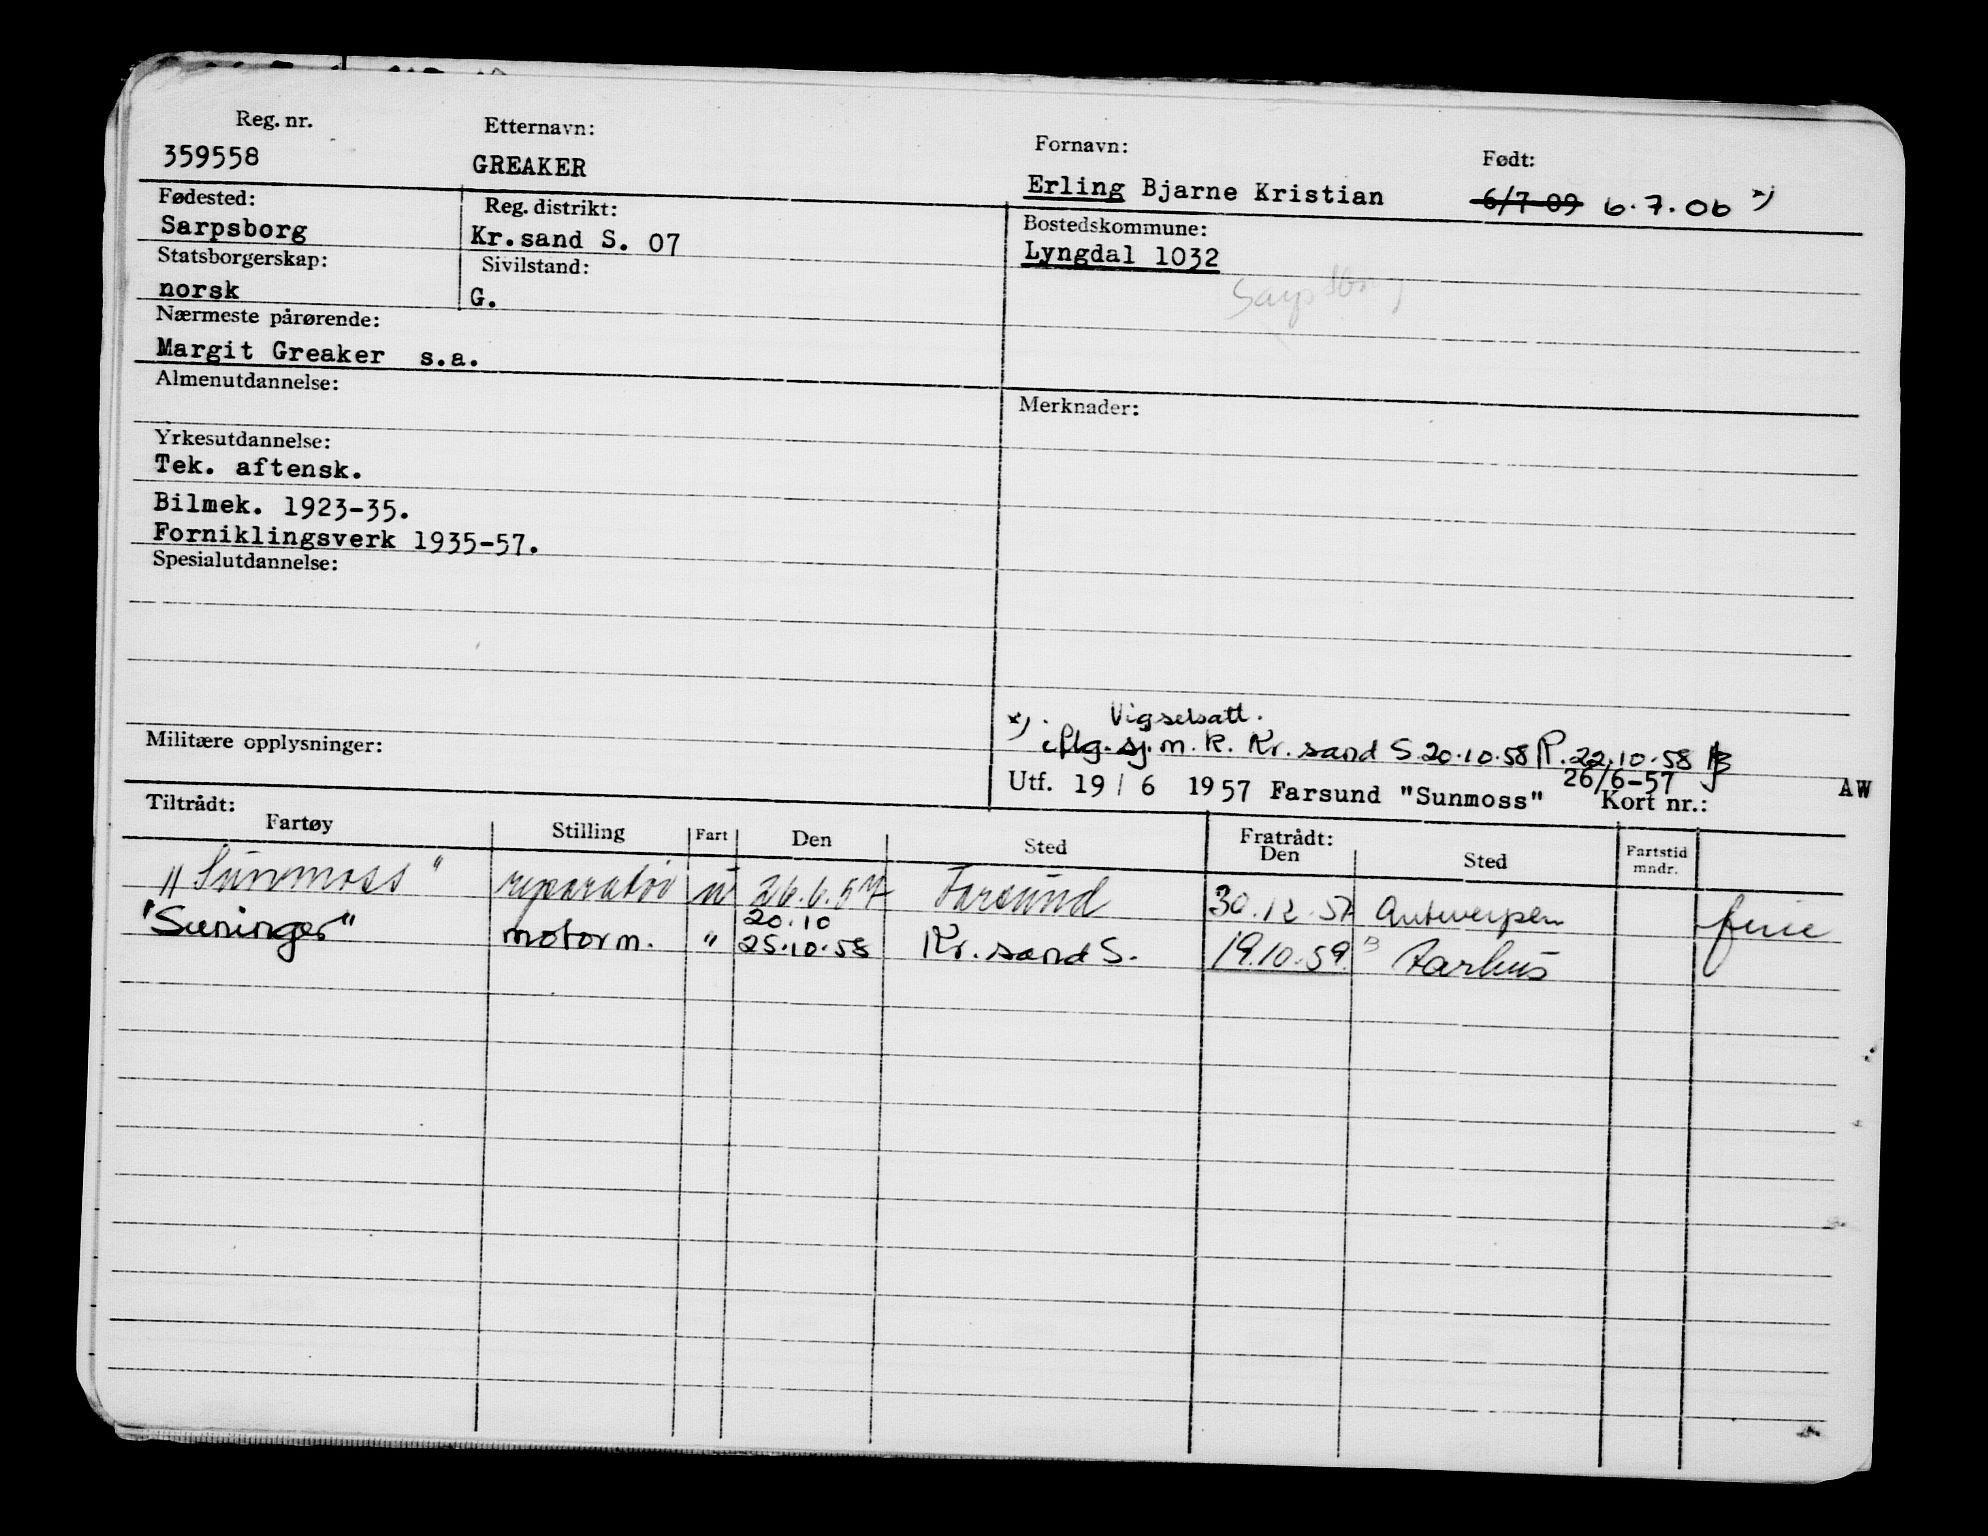 Reg. nr. Etternavn: Fornavn: Født:
359558 GREAKER Erling Bjarne Kristian 6/7-09 6.7.06 x)
Fødested: Reg. distrikt: Bostedskommune:
Sarpsborg Kr.sand S. 07 Lyngdal 1032
Statsborgerskap: Sivilstand: Sarpsborg
norsk G.
Nærmeste pårørende:
Margit Greaker s.a.
Almenutdannelse: Merknader:
Yrkesutdannelse:
Tek. aftensk.
Bilmek. 1923-35.
Forniklingsverk 1935-57.
Spesialutdannelse:
x) Vigselsatt.
iflg. sj. m. k. Kr. sand S. 20.10.58 R. 22.10.58
Militære opplysninger: 26/6-57
Utf. 19/6 1957 Farsund "Sunmoss" Kort nr.: AW
Tiltrådt: Fratrådt:
Fartøy Stilling Fart Den Sted Den Sted Fartstid mndr.
"Sunmoss" reparatør u 26.6.57 Farsund 30.12.57 Antwerpen ferie
20.10
"Suninger" motorm. " 25.10.58 Kr. sand S. 19.10.59. Aarhus